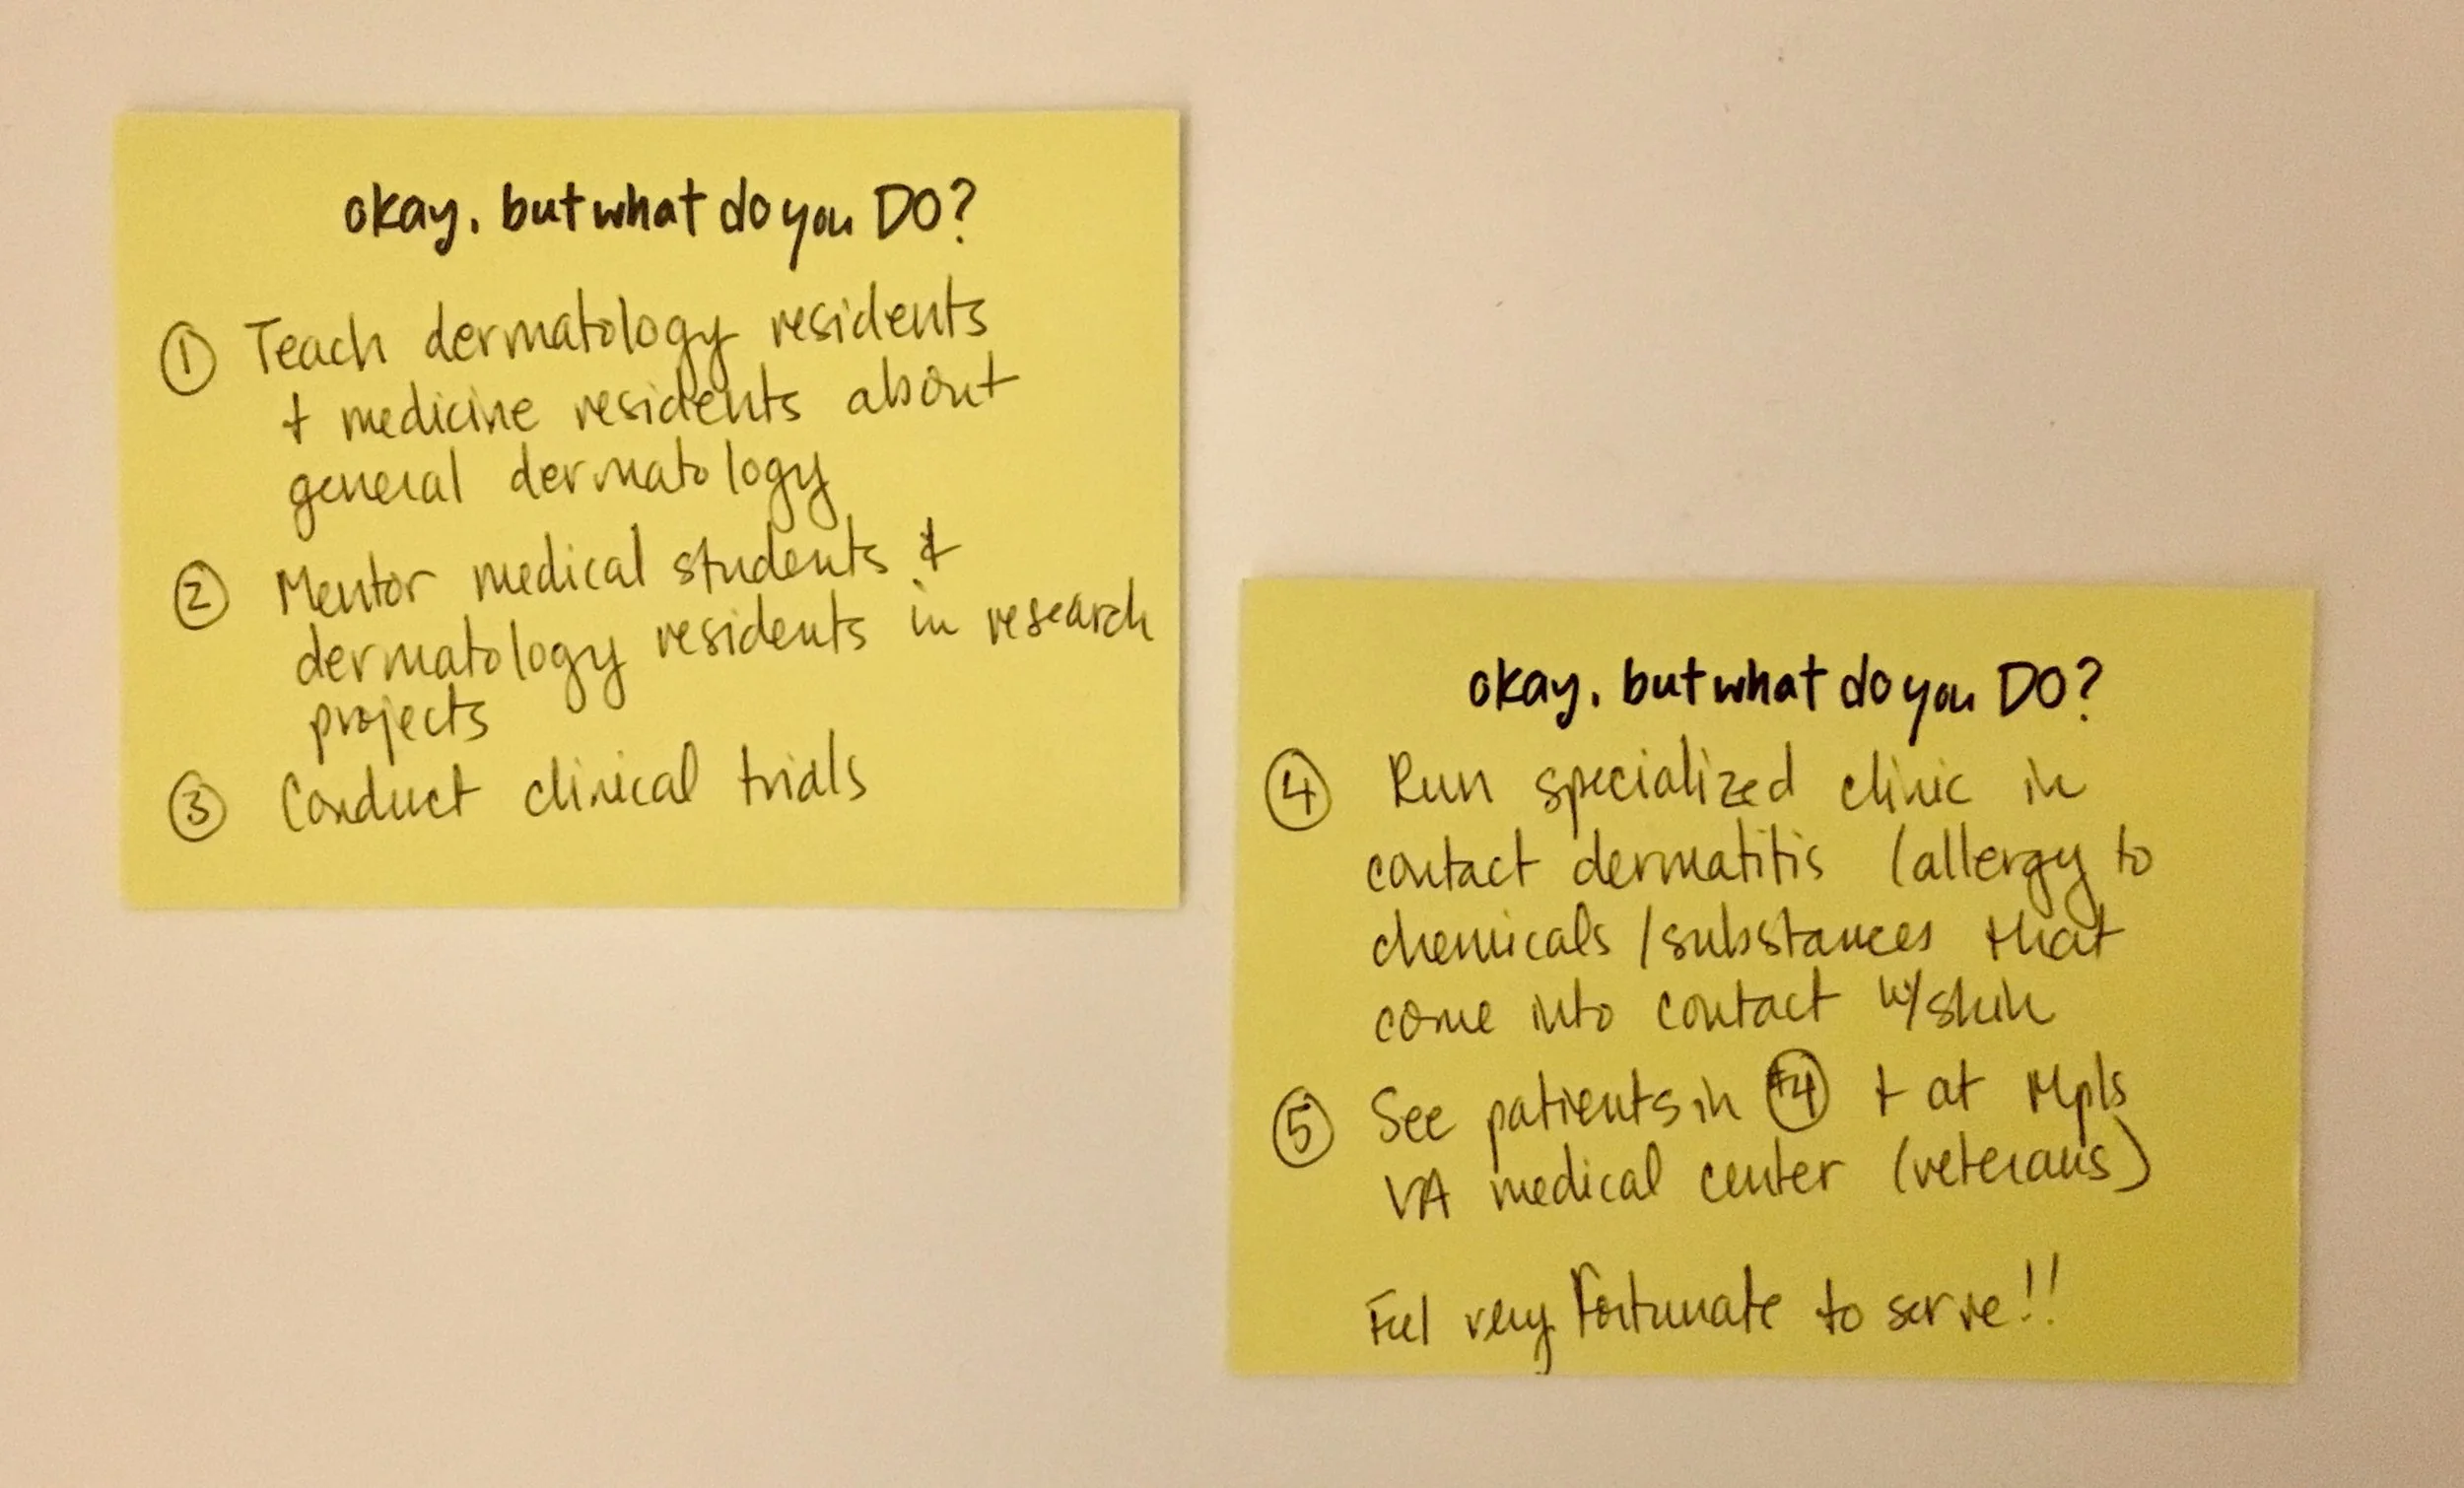 okay, but what do you DO?
① Teach dermatology residents
+ medicine residents about
general dermatology
② Mentor medical students &
dermatology residents in research
projects
③ Conduct clinical trials
okay, but what do you DO?
④ Run specialized clinic in
contact dermatitis (allergy to
chemicals/substances that
come into contact w/skin
⑤ See patients in #4 + at Mpls
VA medical center (veterans)
Feel very fortunate to serve!!